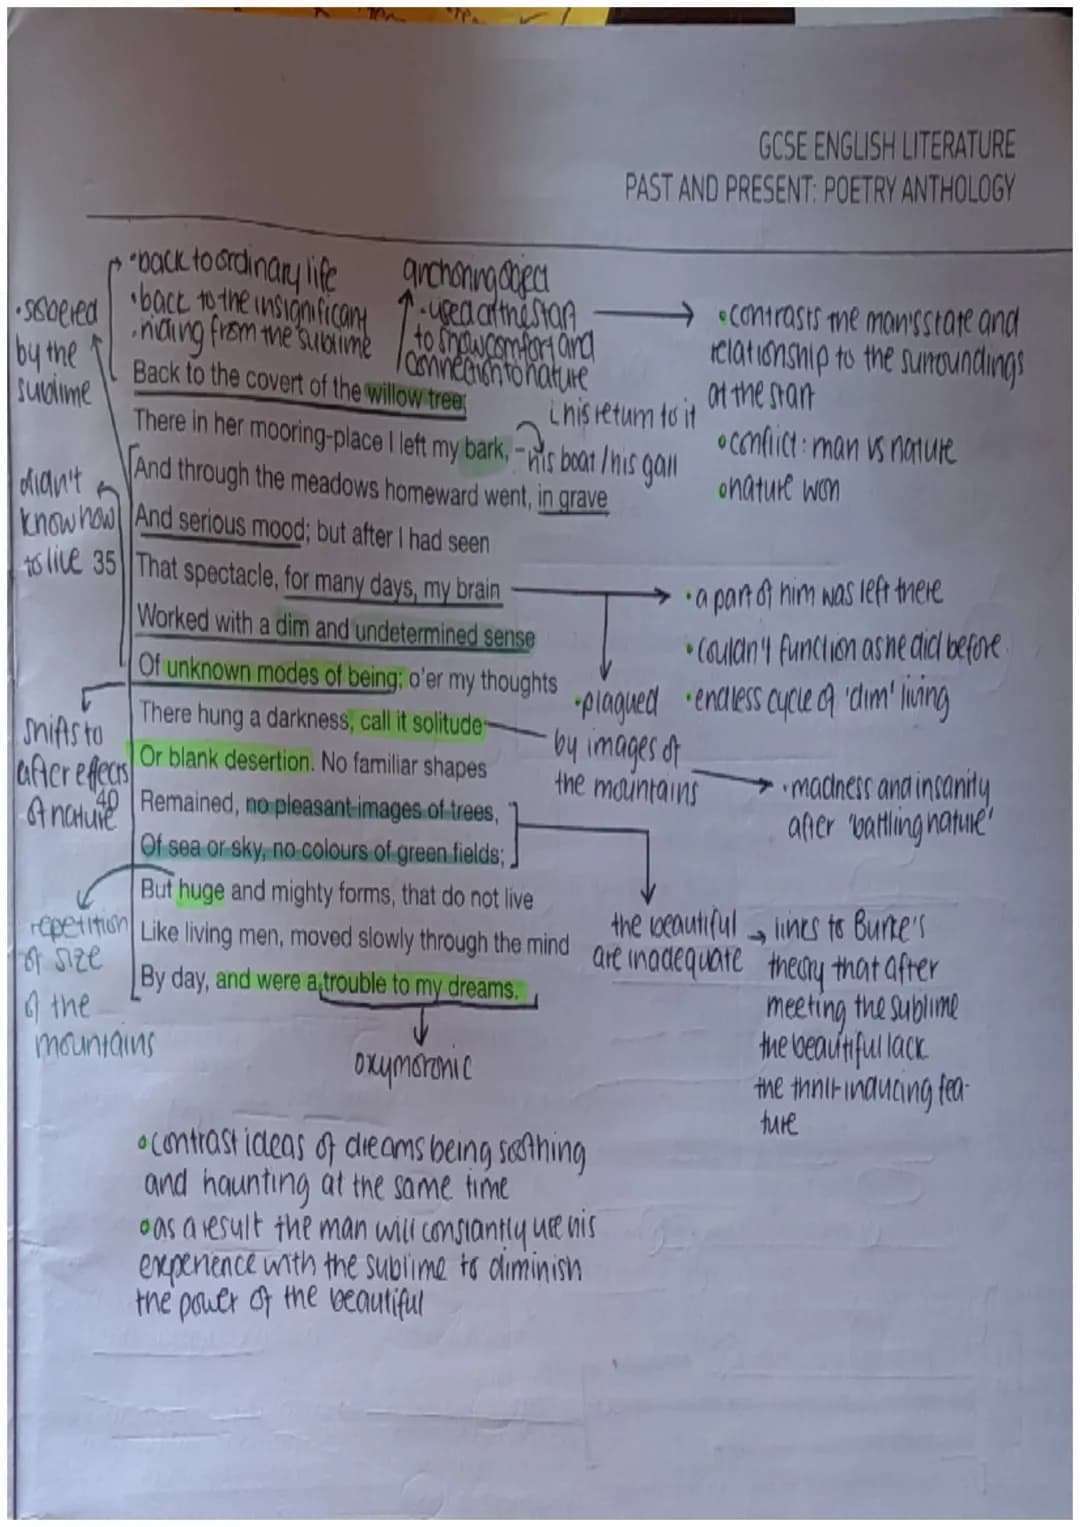 GCSE ENGLISH LITERATURE
PAST AND PRESENT: POETRY ANTHOLOGY
•back to ordinary life
•back to the insignificant
•hiding from the sublime
anchoring object
-used at the start
to show comfort and
connection to nature
•contrasts the man's state and
relationship to the surroundings
at the start
•conflict: man vs nature
•nature won
•sobered
by the
sublime
Back to the covert of the willow tree;
his return to it
There in her mooring-place I left my bark, –
his boat / his
And through the meadows homeward went, in grave
didn't
know how
to live
And serious mood; but after I had seen
35 That spectacle, for many days, my brain
•a part of him was left there
Worked with a dim and undetermined sense
•couldn't function as he did before
Of unknown modes of being; o'er my thoughts
•endless cycle of 'dim' living
There hung a darkness, call it solitude
•plagued
by images of
the mountains
•madness and insanity
after 'battling nature'
shifts to
after effects
of nature
Or blank desertion. No familiar shapes
40 Remained, no pleasant images of trees,
Of sea or sky, no colours of green fields;
But huge and mighty forms, that do not live
Like living men, moved slowly through the mind
By day, and were a trouble to my dreams.
repetition
of size
of the
mountains
the beautiful
are inadequate
links to Burke's
theory that after
meeting the sublime
the beautiful lack
the thrill-inducing fea-
ture
oxymoronic
•contrast ideas of dreams being soothing
and haunting at the same time
•as a result the man will constantly use his
experience with the sublime to diminish
the power of the beautiful